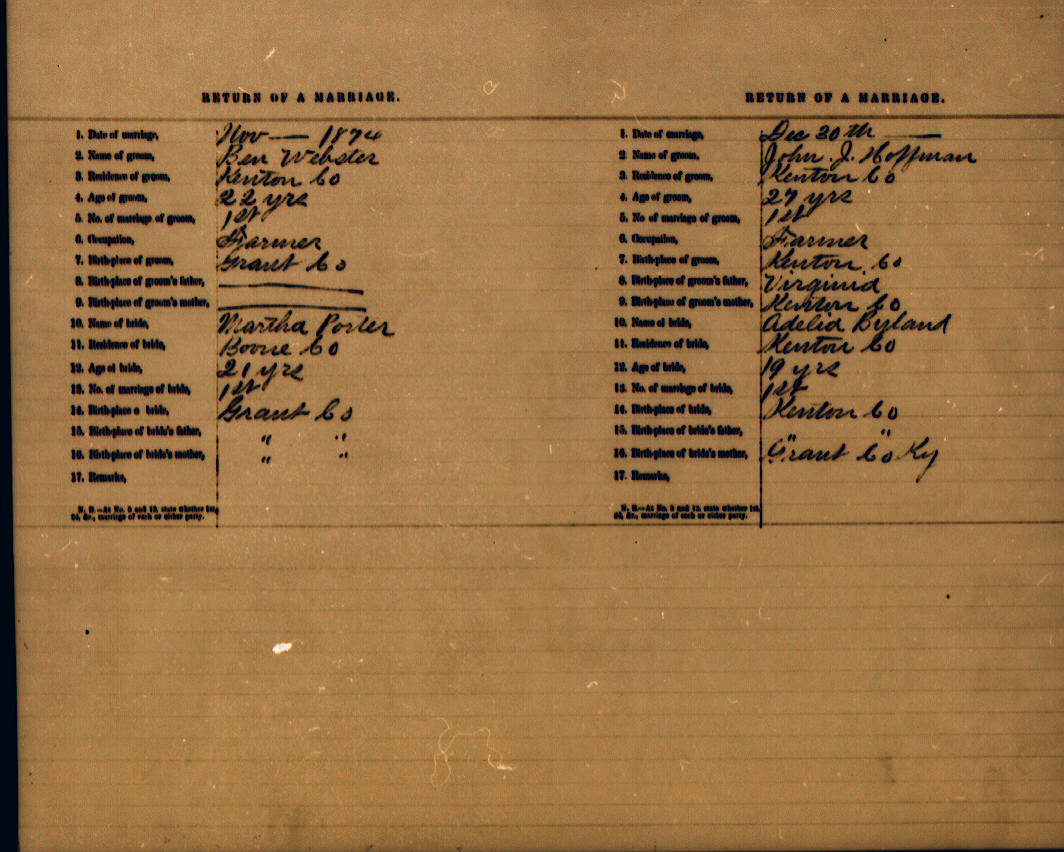 RETURN OF A MARRIAGE.
1. Date of marriage, Nov — 1874
2. Name of groom, Ben Webster
3. Residence of groom, Kenton Co
4. Age of groom, 22 yrs
5. No. of marriage of groom, 1st
6. Occupation, Farmer
7. Birth-place of groom, Grant Co
8. Birth-place of groom's father, —
9. Birth-place of groom's mother, —
10. Name of bride, Martha Porter
11. Residence of bride, Boone Co
12. Age of bride, 21 yrs
13. No. of marriage of bride, 1st
14. Birth-place o bride, Grant Co
15. Birth-place of bride's father, " "
16. Birth-place of bride's mother, " "
17. Remarks,
N. B.—At No. 5 and 13, state whether 1st,
2d, &c., marriage of each or either party.
RETURN OF A MARRIAGE.
1. Date of marriage, Dec 30th —
2 Name of groom, John. J. Hoffman
3. Residence of groom, Kenton Co
4. Age of groom, 27 yrs
5. No of marriage of groom, 1st
6. Occupation, Farmer
7. Birth-place of groom, Kenton Co
8. Birth-place of groom's father, Virginia
9. Birth-place of groom's mother, Kenton Co
10. Name of bride, Adelia Byland
11. Residence of bride, Kenton Co
12. Age of bride, 19 yrs
13. No. of marriage of bride, 1st
14. Birth-place of bride, Kenton Co
15. Birth-place of bride's father, " "
16. Birth-place of bride's mother, Grant Co Ky
17. Remarks,
N. B.—At No. 5 and 13, state whether 1st,
2d, &c., marriage of each or either party.